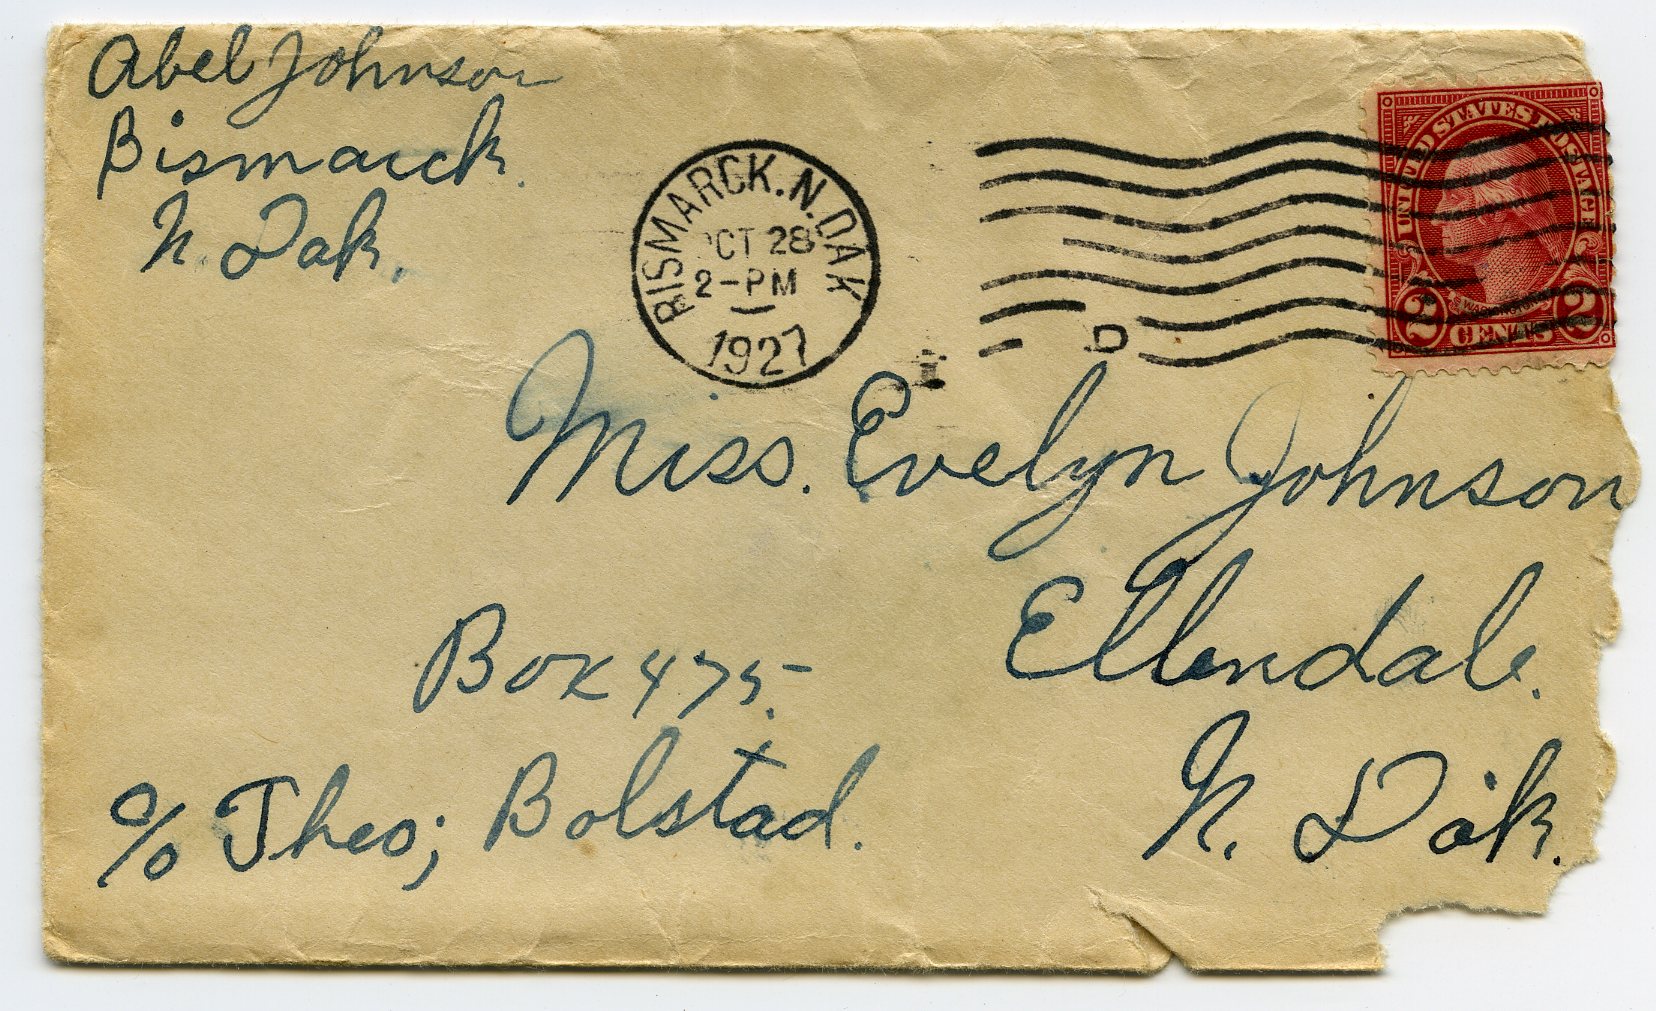 Abel Johnson
Bismarck.
N. Dak.
BISMARCK. N. DAK
OCT 28
2-PM
1927
D
UNITED STATES POSTAGE
WASHINGTON
2 CENTS 2
Miss. Evelyn Johnson
Ellendale.
Box 475.
N. Dak.
c/o Theo; Bolstad.